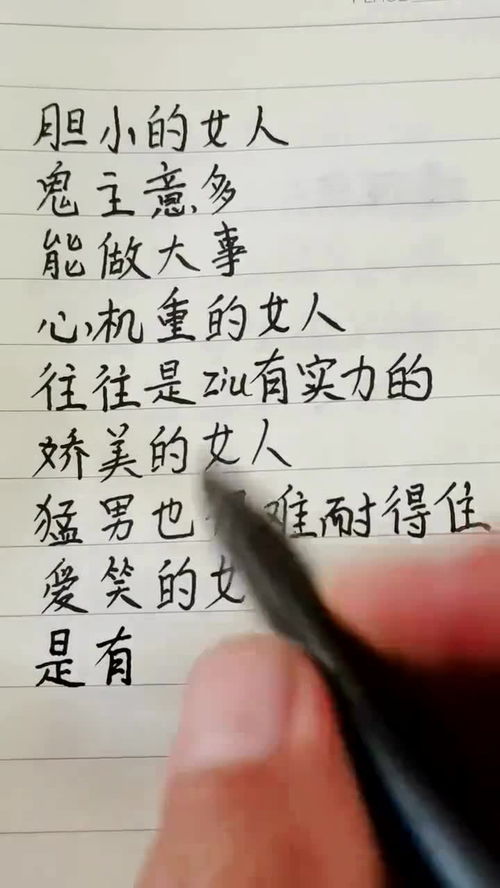 胆小的女人
鬼主意多
能做大事
心机重的女人
往往是ziu有实力的
娇美的女人
猛男也 难耐得住
爱笑的女
是有